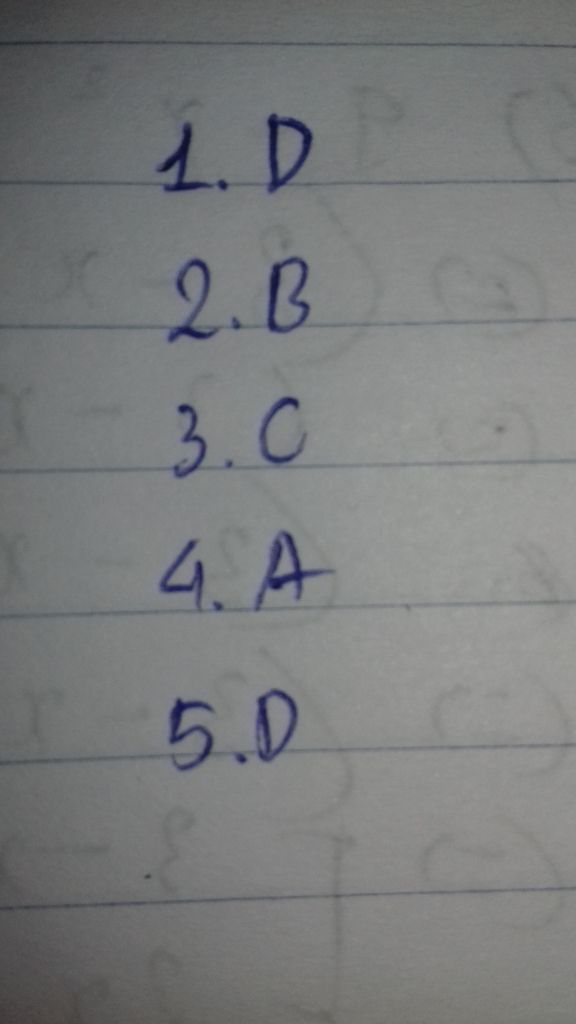 1. D
2. B
3. C
4. A
5. D